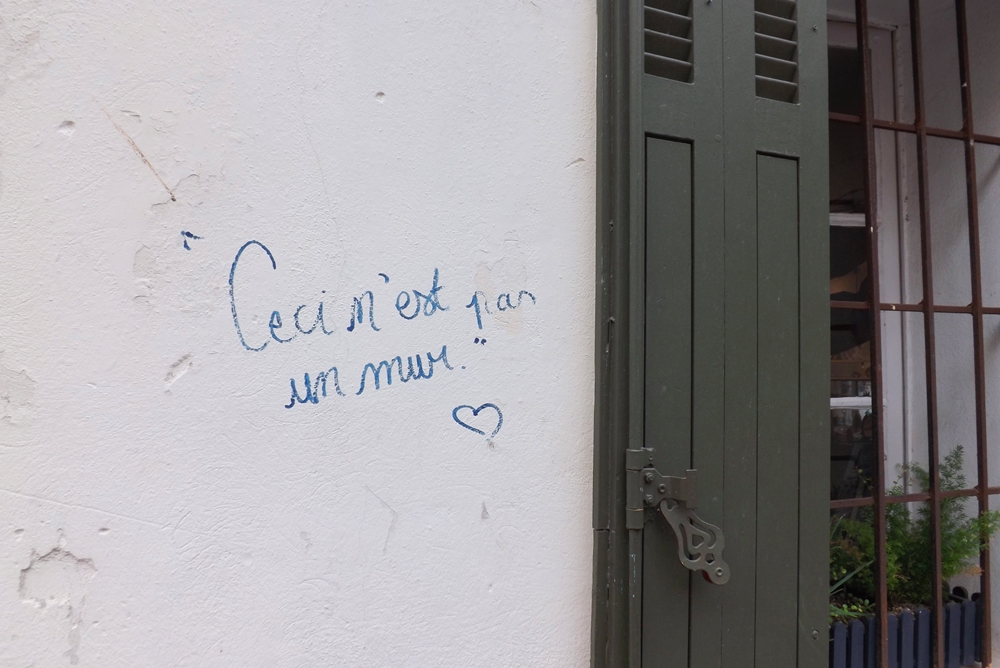 "Ceci n'est pas
un mur."